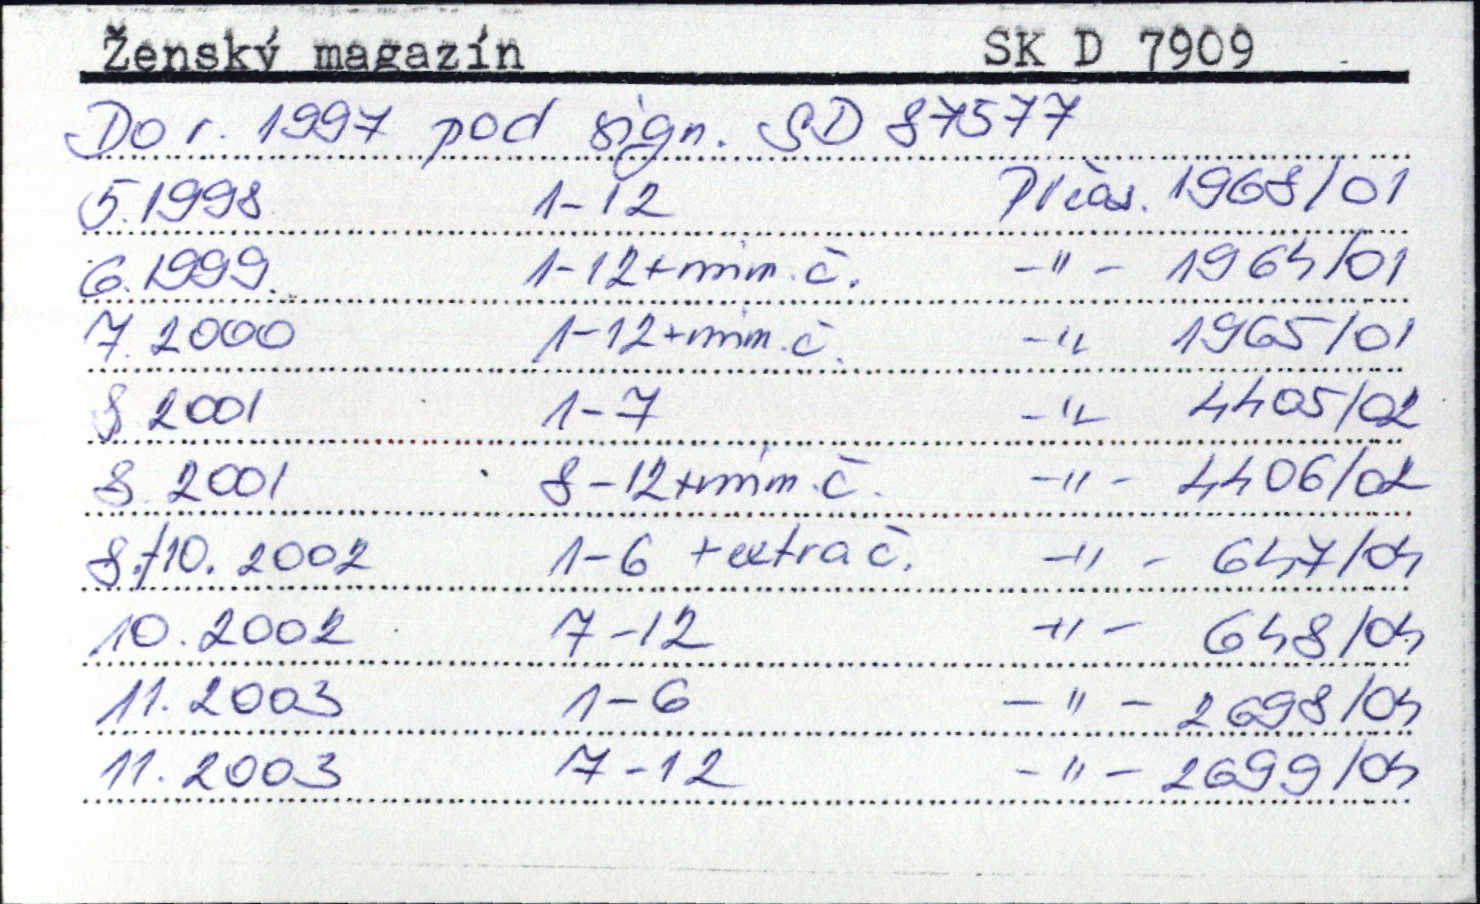 Ženský magazín SK D 7909
Do r. 1997 pod sign. SD 87577
5. 1998 1-12 Přčas. 1968/01
6. 1999. 1-12+mim. č. -"- 1964/01
7. 2000 1-12+mim. č. -" 1965/01
8 2001 1-7 -" 4405/02
8. 2001 8-12+mim. č. -"- 4406/02
8./10. 2002 1-6 +extra č. -"- 647/04
10. 2002 7-12 -"- 648/04
11. 2003 1-6 -"- 2698/04
11. 2003 7-12 -"- 2699/04